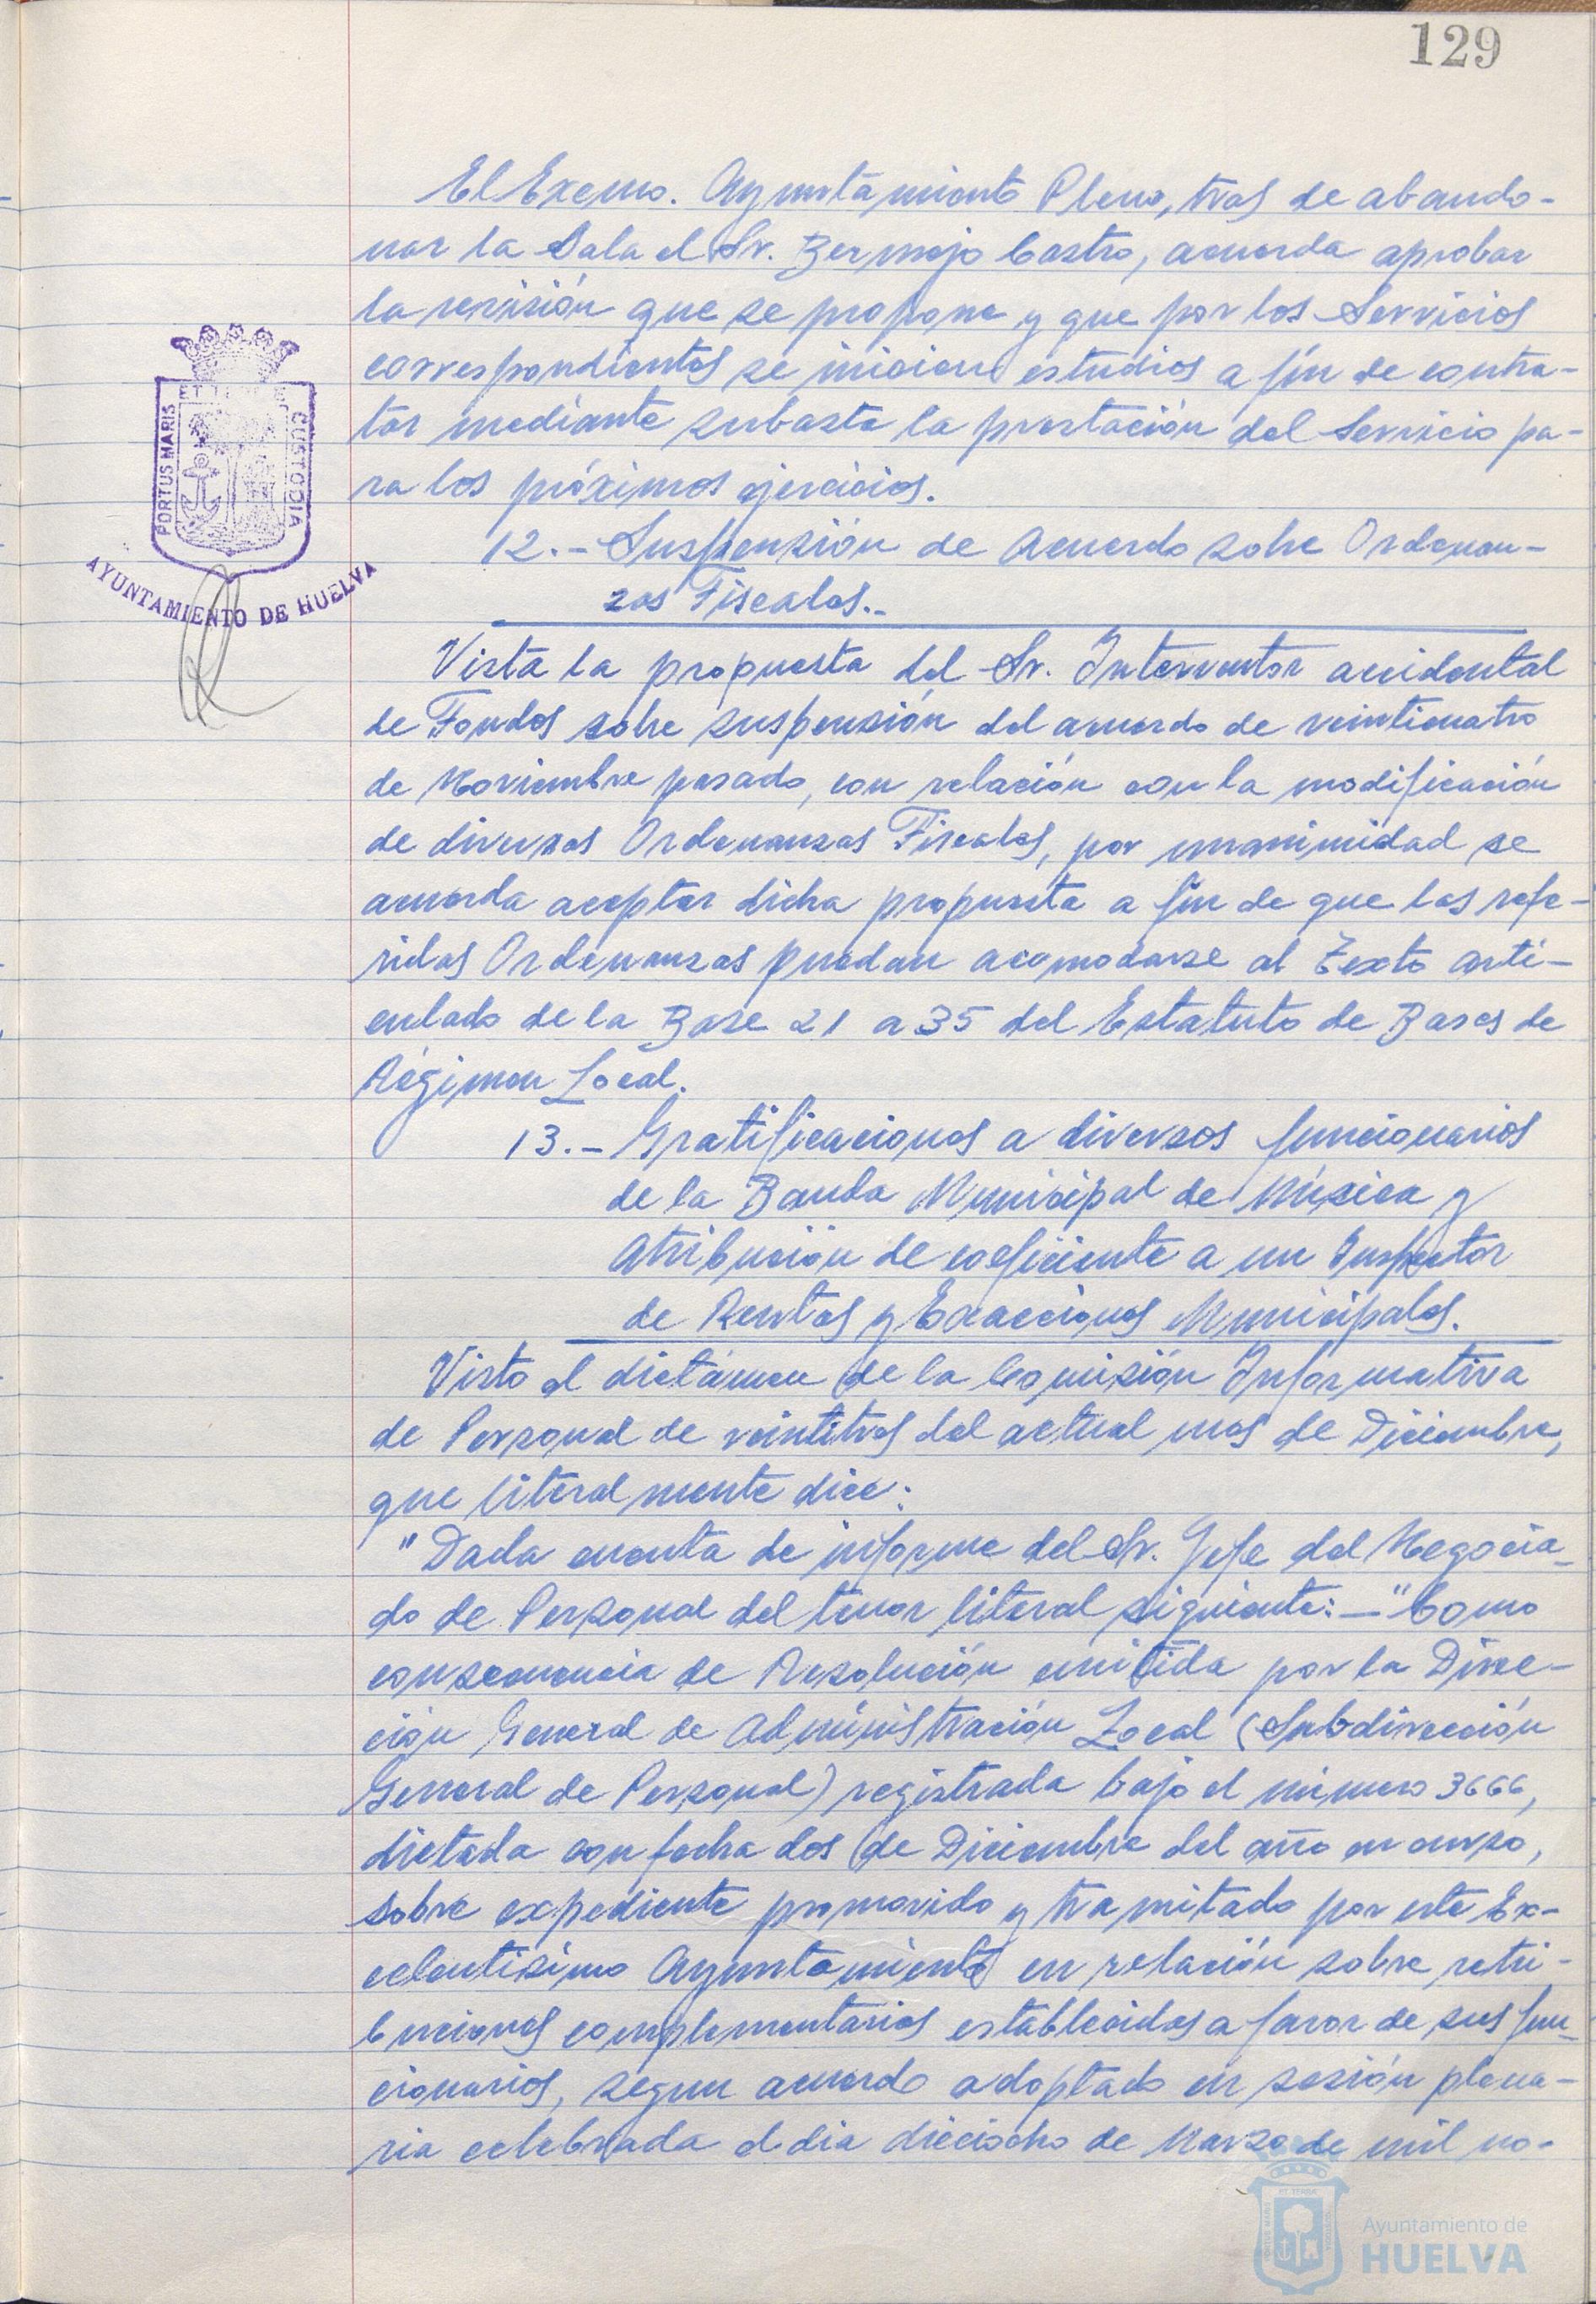 129
El Excmo. Ayuntamiento Pleno, tras de abando-
nar la Sala el Sr. Bermejo Castro, acuerda aprobar
la revisión que se propone y que por los Servicios
correspondientes se inicien estudios a fin de contra-
tar mediante subasta la prestación del Servicio pa-
ra los próximos ejercicios.
PORTUS MARIS
CUSTODIA
AYUNTAMIENTO DE HUELVA
12.- Suspensión de Acuerdo sobre Ordenan-
zas Fiscales.-
Vista la propuesta del Sr. Interventor accidental
de Fondos sobre suspensión del acuerdo de veinticuatro
de Noviembre pasado, con relación con la modificación
de diversas Ordenanzas Fiscales, por unanimidad se
acuerda aceptar dicha propuesta a fin de que las refe-
ridas Ordenanzas puedan acomodarse al Texto arti-
culado de la Base 21 a 35 del Estatuto de Bases de
Régimen Local.
13.- Gratificaciones a diversos funcionarios
de la Banda Municipal de Música y
Atribución de coeficiente a un Inspector
de Rentas y Exacciones Municipales.
Visto el dictámen de la Comisión Informativa
de Personal de veintitres del actual mes de Diciembre,
que literalmente dice:
"Dada cuenta de informe del Sr. Jefe del Negocia-
do de Personal del tenor literal siguiente: -"Como
consecuencia de Resolución emitida por la Direc-
ción General de Administración Local (Subdirección
General de Personal) registrada bajo el número 3666,
dictada con fecha dos de Diciembre del año en curso,
sobre expediente promovido y tramitado por este Ex-
celentisimo Ayuntamiento en relación sobre retri-
buciones complementarias establecidas a favor de sus fun-
cionarios, segun acuerdo adoptado en sesión plena-
ria celebrada el dia dieciocho de Marzo de mil no-
Ayuntamiento de
HUELVA